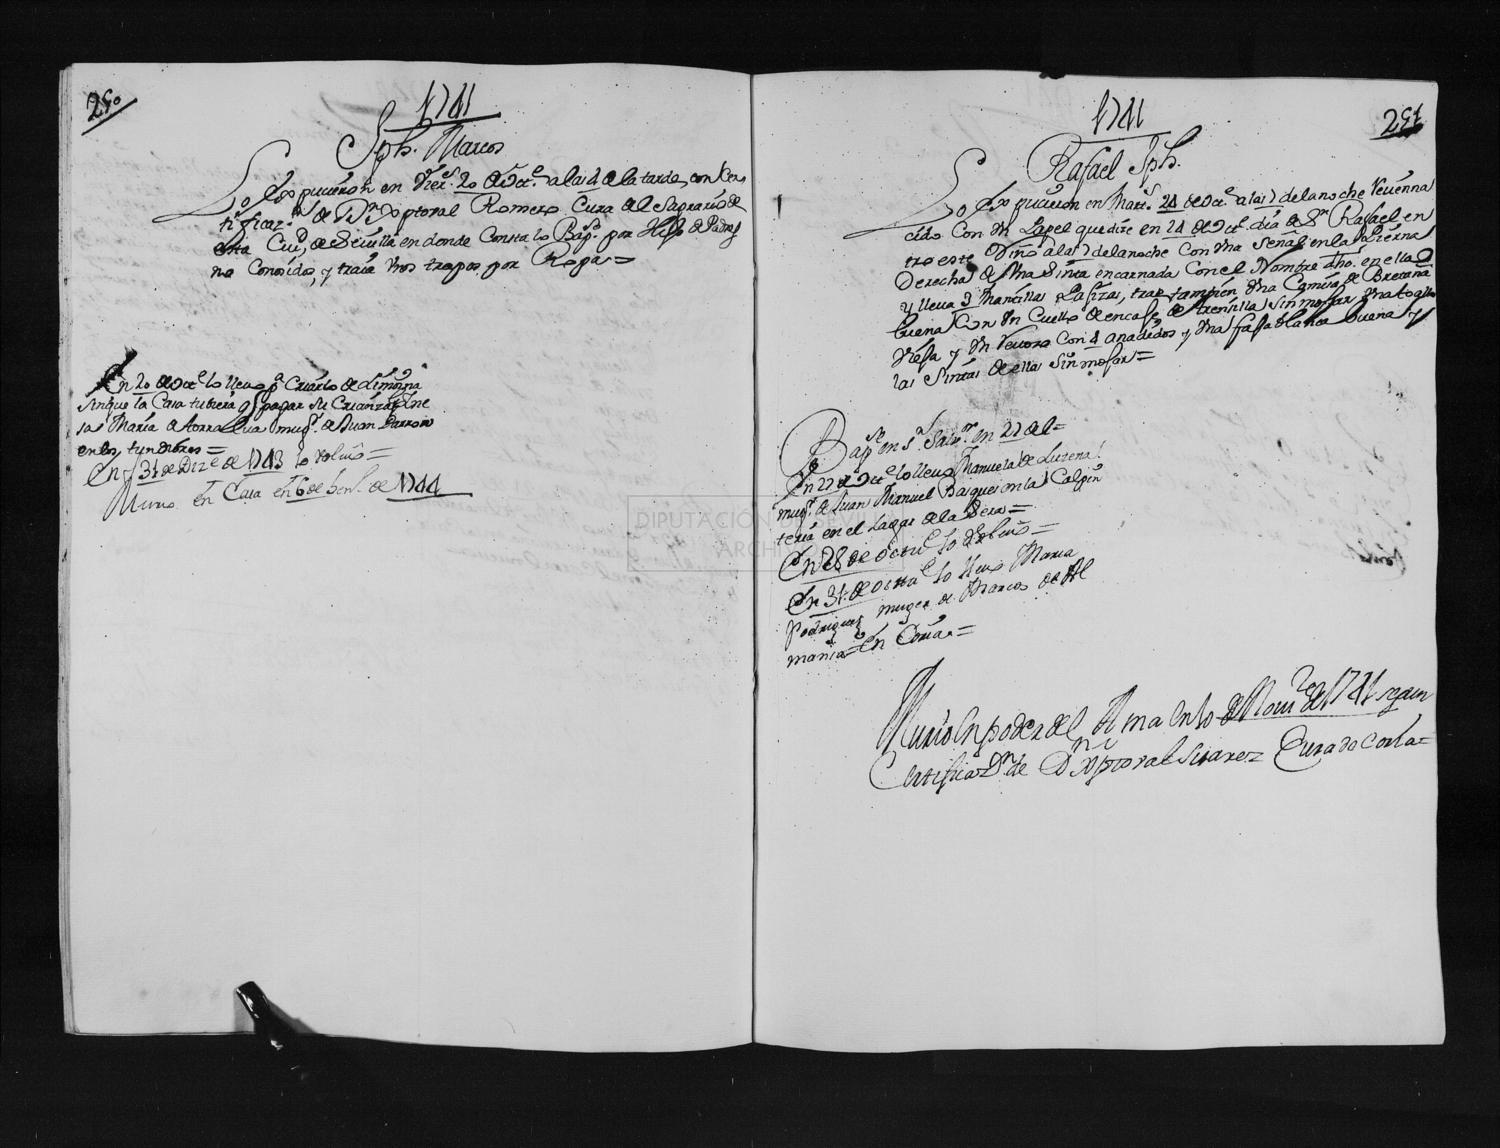 250
1741
Jph. Marcos
Lo Expucieron en Viers. 20 de Octe. a las 4 de la tarde, con Cer
tificaz.on de Dn. Xptoral Romero Cura del Sagrario de
esta Ciud. de Sevilla en donde Consta lo Bapo. por Hijo de Padres
no Conosidos, y traia Unos trapos por Ropa=
En 20 de Octe. lo llevo pa. Criarlo de Limosna
sin que la Casa tubiera q pagar su Crianza Ine
sa Maria de Torralva mugr. de Juan
en los tundidores=
En 31 de Dize. de 1743 lo volvio=
Murio en Casa en 6 de Henº. de 1744
251
1741
Rafael Jph.
Lo Expucieron en Mart.s 24 de Octe. a las 7 de la noche Veuenna
cido Con Un Papel que dise en 24 de Octe. dia de Sn. Rafael en
tro este Niño a las 7 de la noche Con Una Señal en la Pierna
Derecha de Una Sinta encarnada Con el Nombre dho. en ella
y lleva 3 Mantillas trae tambien Una Camisa de Bretaña
buena Con Un Cuello de encaje de trensilla sin mojar Una toalla
Vieja y Un Con 4 añadidos y Una faja blanca buena y
las Sintas de ellas Sin mojar=
Bapse. en Sn. Salvor. en 27 del=
En 27 de Octe. lo llevo Manuela de Lusena
mugr. de Juan Manuel Basques en la Calpin
teria en el Lagar de la Sera=
En 28 de Octue. lo volvio=
En 31 de Octue. lo llevo Maria
Rodriguez muger de Marcos de Al
mania= En Coria=
Murio En poder del Ama En 10 de Novre. de 1741 segun
Certificazn. de Dn. Xptoval Suarez Cura de Coria=
DIPUTACIÓN DE SEVILLA
ARCHIVO